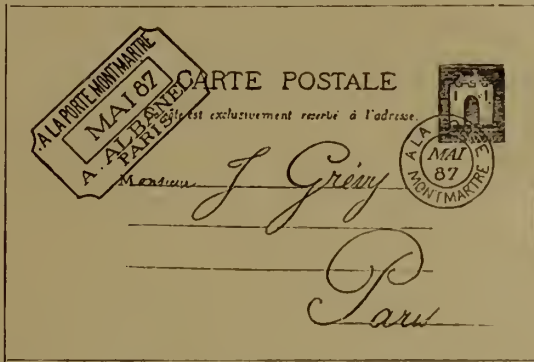 A LA PORTE MONTMARTRE
MAI 87
A. ALBANEL
PARIS
CARTE POSTALE
est exclusivement reservé à l'adresse.
A LA
MAI
87
MONTMARTRE
Monsieur J Grévy
Paris